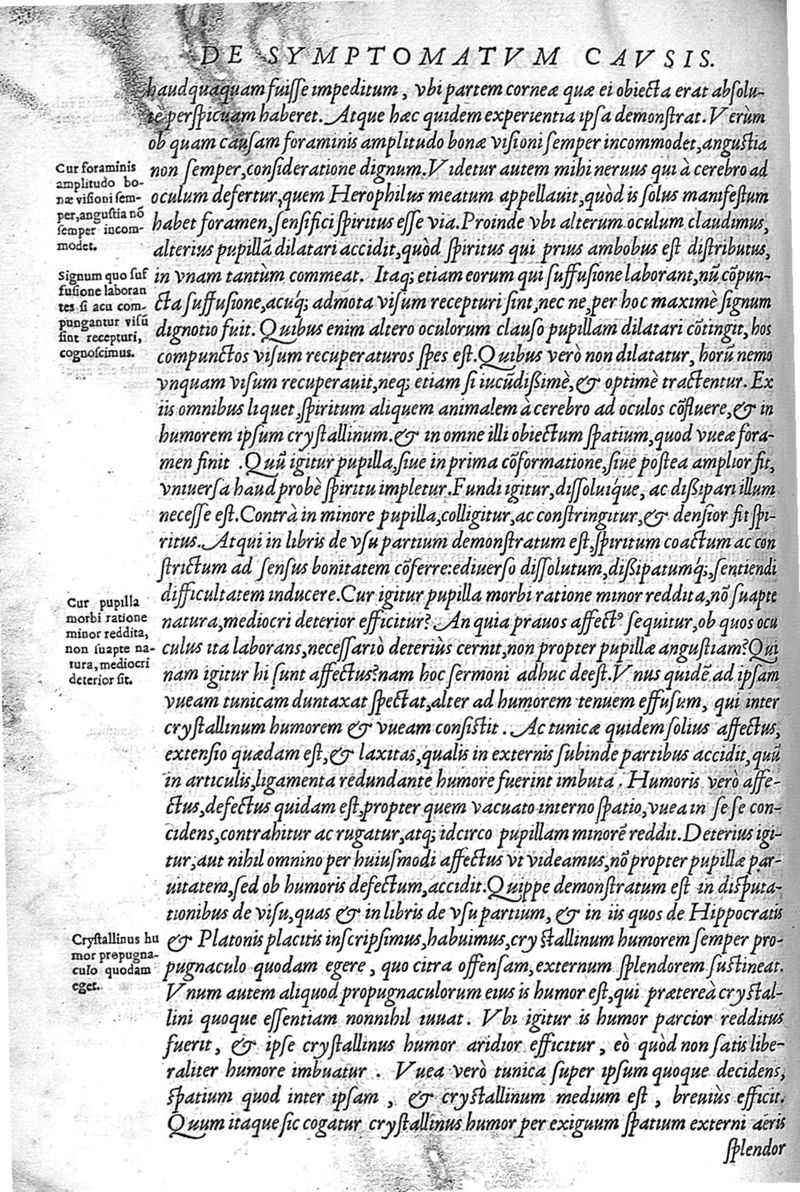 DE SYMPTOMATVM CAVSIS.
haudquaquam fuisse impeditum, vbi partem corneæ quæ ei obiecta erat absolu-
tè perspicuam haberet. Atque hæc quidem experientia ipsa demonstrat. Verùm
ob quam causam foraminis amplitudo bonæ visioni semper incommodet, angustia
non semper, consideratione dignum. Videtur autem mihi neruus qui à cerebro ad
oculum defertur, quem Herophilus meatum appellauit, quòd is solus manifestum
habet foramen, sensifici spiritus esse via. Proinde vbi alterum oculum claudimus,
alterius pupillā dilatari accidit, quòd spiritus qui prius ambobus est distributus,
in vnam tantùm commeat. Itaq; etiam eorum qui suffusione laborant, nū cōpun-
cta suffusione, acuq; admota visum recepturi sint, nec ne, per hoc maximè signum
dignotio fuit. Quibus enim altero oculorum clauso pupillam dilatari cōtingit, hos
compunctos visum recuperaturos spes est. Quibus verò non dilatatur, horū nemo
vnquam visum recuperauit, neq; etiam si iucūdißimè, & optimè tractentur. Ex
iis omnibus liquet, spiritum aliquem animalem à cerebro ad oculos cōfluere, & in
humorem ipsum crystallinum. & in omne illi obiectum spatium, quod vueæ fora-
men finit. Quū igitur pupilla, siue in prima cōformatione, siue postea amplior fit,
vniuersa haud probè spiritu impletur. Fundi igitur, dissoluique, ac dißipari illum
necesse est. Contrà in minore pupilla, colligitur, ac constringitur, & densior fit spi-
ritus. Atqui in libris de vsu partium demonstratum est, spiritum coactum ac con
strictum ad sensus bonitatem cōferre: ediuerso dissolutum, dißipatumq;, sentiendi
difficultatem inducere. Cur igitur pupilla morbi ratione minor reddita, nō suapte
natura, mediocri deterior efficitur? An quia prauos affectꝰ sequitur, ob quos ocu
culus ita laborans, necessariò deteriùs cernit, non propter pupillæ angustiam? Qui
nam igitur hi sunt affectus? nam hoc sermoni adhuc deest. Vnus quidē ad ipsam
vueam tunicam duntaxat spectat, alter ad humorem tenuem effusum, qui inter
crystallinum humorem & vueam consistit. Ac tunicæ quidem solius affectus,
extensio quædam est, & laxitas, qualis in externis subinde partibus accidit, quū
in articulis, ligamenta redundante humore fuerint imbuta. Humoris verò affe-
ctus, defectus quidam est, propter quem vacuato interno spatio, vuea in sese con-
cidens, contrahitur ac rugatur, atq; idcirco pupillam minorē reddit. Deterius igi-
tur, aut nihil omnino per huiusmodi affectus vt videamus, nō propter pupillæ par-
uitatem, sed ob humoris defectum, accidit. Quippe demonstratum est in disputa-
tionibus de visu, quas & in libris de vsu partium, & in iis quos de Hippocratis
& Platonis placitis inscripsimus, habuimus, crystallinum humorem semper pro-
pugnaculo quodam egere, quo citra offensam, externum splendorem sustineat.
Vnum autem aliquod propugnaculorum eius is humor est, qui prætereà crystal-
lini quoque essentiam nonnihil iuuat. Vbi igitur is humor parcior redditus
fuerit, & ipse crystallinus humor aridior efficitur, eò quòd non satis libe-
raliter humore imbuatur. Vuea verò tunica super ipsum quoque decidens,
spatium quod inter ipsam, & crystallinum medium est, breuiùs efficit.
Quum itaque sic cogatur crystallinus humor per exiguum spatium externi aëris
splendor
Cur foraminis
amplitudo bo-
næ visioni sem-
per, angustia nō
semper incom-
modet.
Signum quo suf
fusione laboran
tes si acu com-
pungantur visū
sint recepturi,
cognoscimus.
Cur pupilla
morbi ratione
minor reddita,
non suapte na-
tura, mediocri
deterior sit.
Crystallinus hu
mor propugna-
culo quodam
eget.